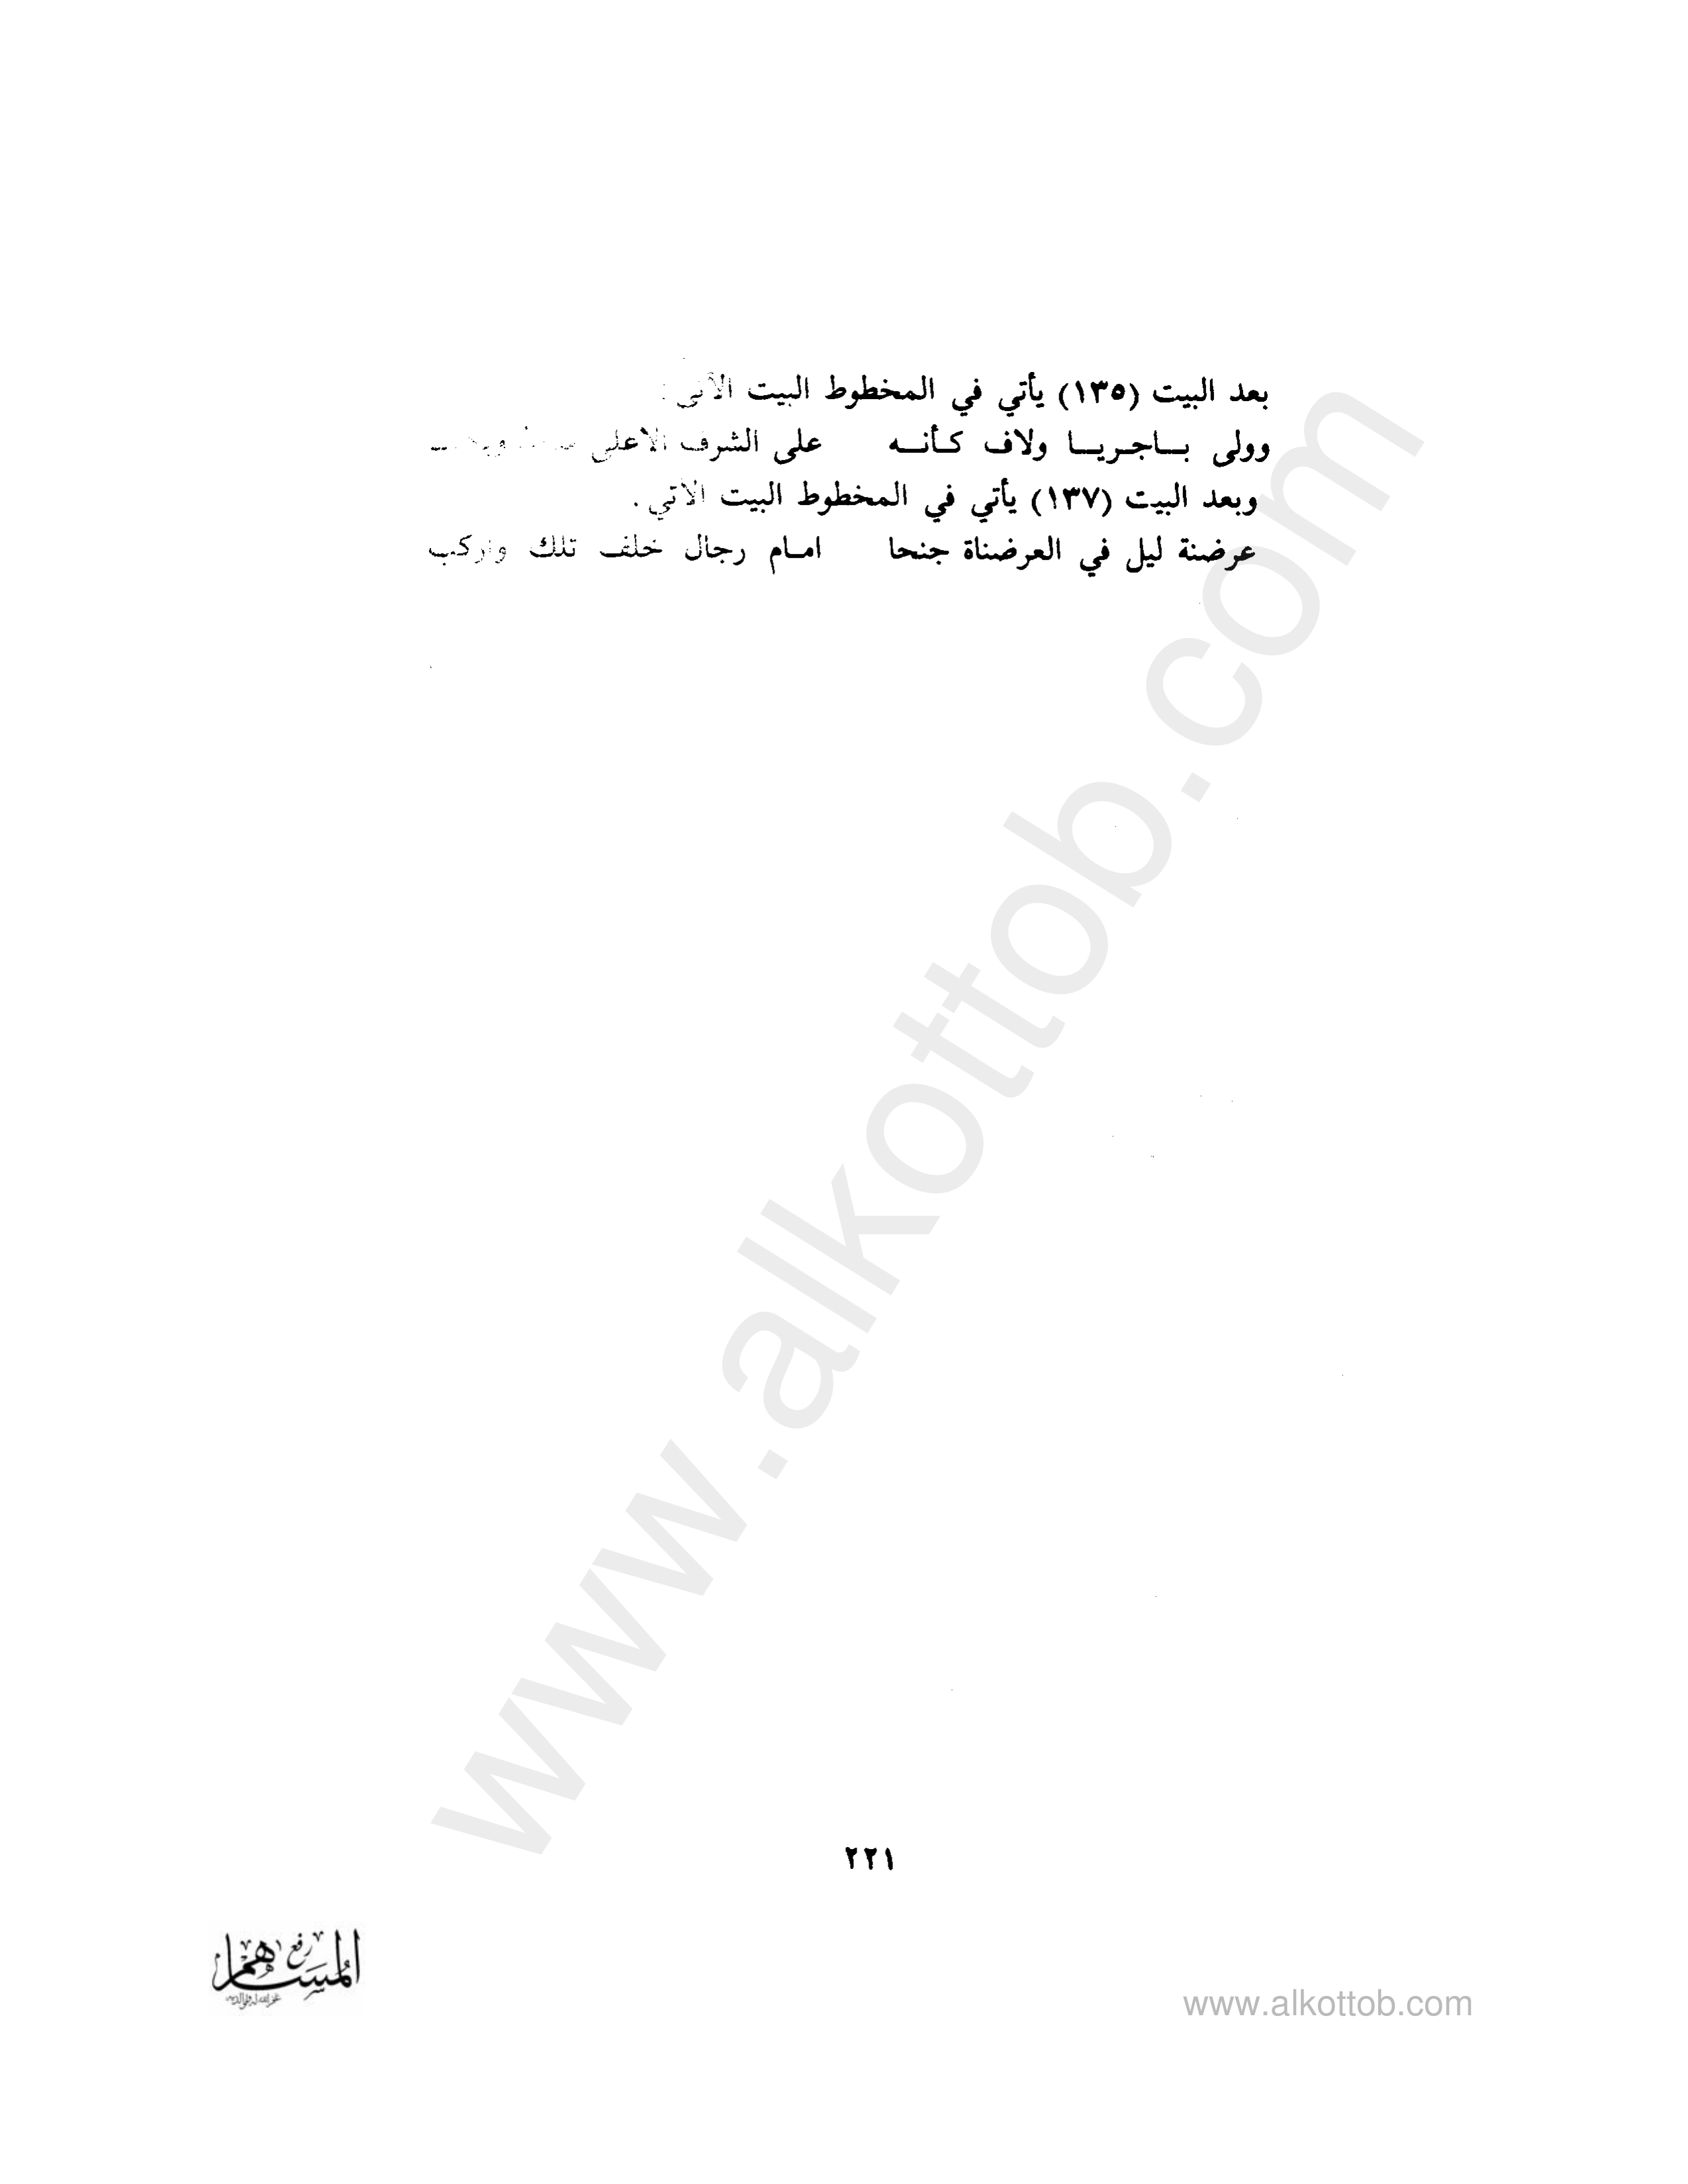 بعد البيت (١٣٥) يأتي في المخطوط البيت الآتي :
وولى بـاجـريـا ولاف كـأنـه على الشرف الاعلى
وبعد البيت (١٣٧) يأتي في المخطوط البيت الآتي .
عرضنة ليل في العرضناة جنحا امـام رجال خلف تلك واركب
www.alkottob.com
٢٢١
رفع
المساهم
www.alkottob.com